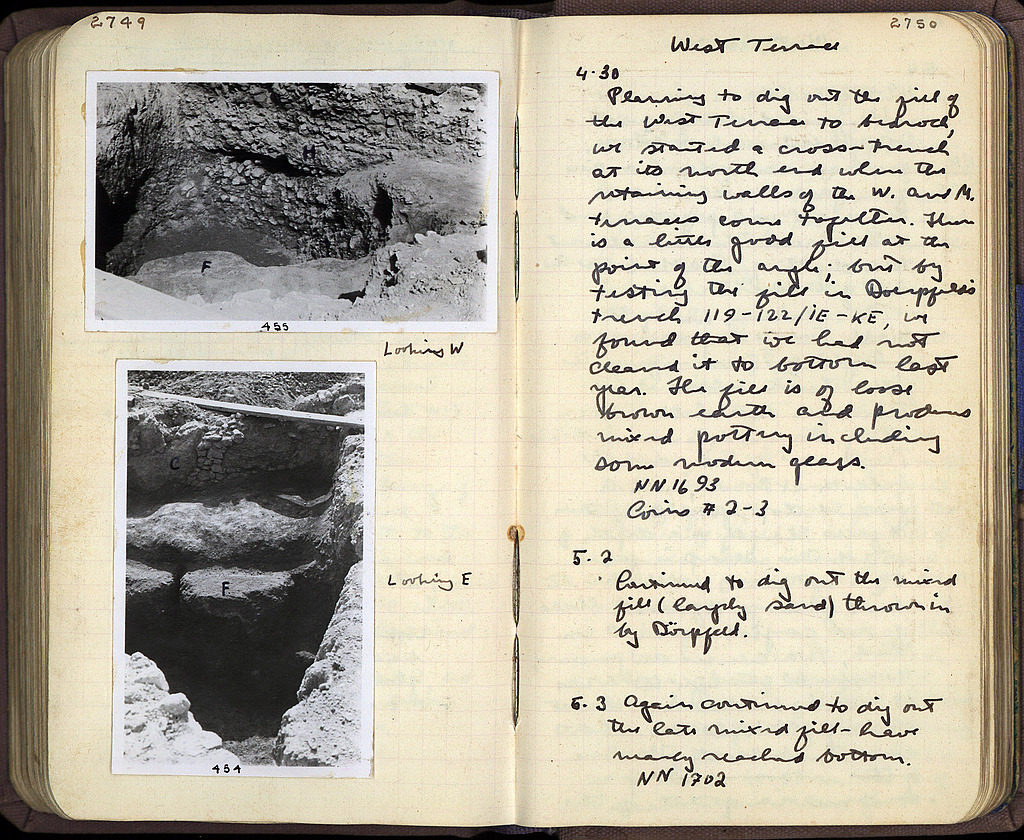 2749
H
F
455
Looking W
C
F
Looking E
454
2750
West Terrace
4.30
Planning to dig out the fill of
the West Terrace to bedrock,
we started a cross-trench
at its north end where the
retaining walls of the W. and M.
terraces come together. There
is a little good fill at the
point of the angle; but by
testing the fill in Doerpfeld's
trench 119-122/IE-KE, we
found that we had not
cleared it to bottom last
year. The fill is of loose
brown earth and produces
mixed pottery including
some modern glass.
NN 1693
Coins # 2-3
5.2
Continued to dig out the mixed
fill (largely sand) thrown in
by Dörpfeld.
5.3 Again continued to dig out
the late mixed fill - have
nearly reached bottom.
NN 1702